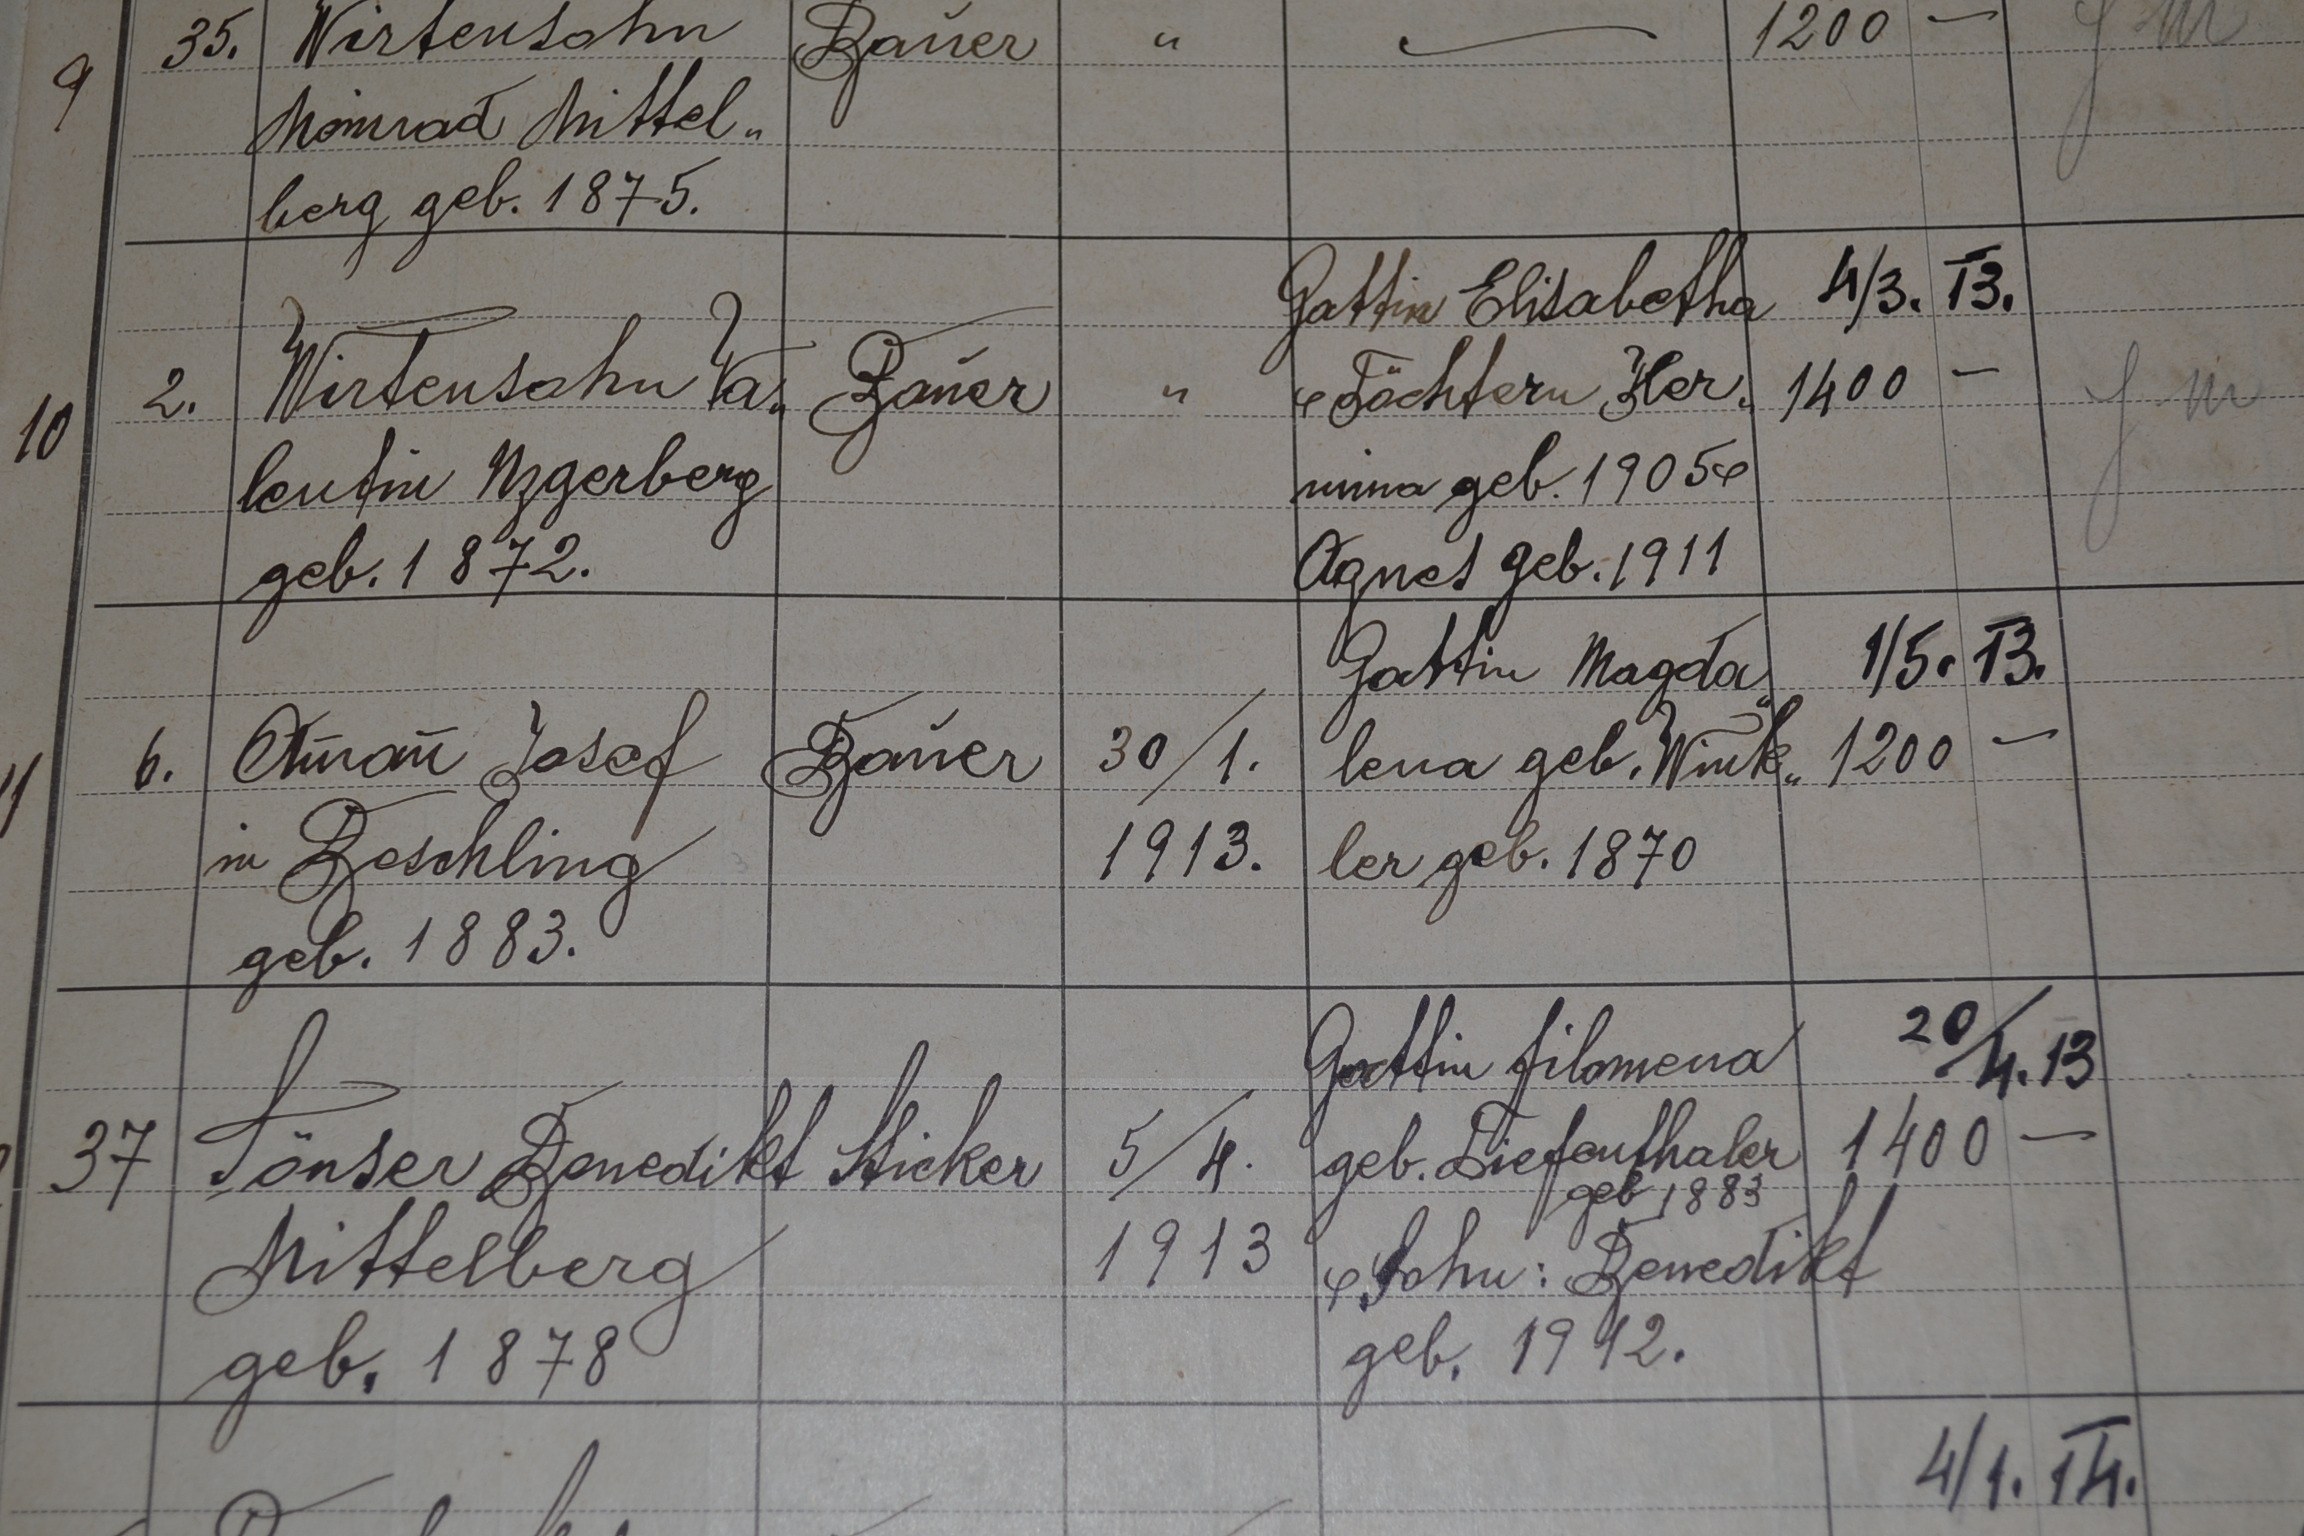 35. Wirtensohn Bauer " — 1200 —
9 Meinrad Mittel„
berg geb. 1875.
Gattin Elisabetha 4/3. 13.
10 2. Wirtensohn Va„ Bauer " & Töchtern Her„ 1400 —
lentin Nzgerberg mina geb. 1905 &
geb. 1872. Agnes geb. 1911
Gattin Magda„ 1/5. 13.
11 6. Amañ Josef Bauer 30/1. lena geb. Wink„ 1200 —
in Beschling 1913. ler geb. 1870
geb. 1883.
Gattin Filomena 20/4. 13
37 Tönser Benedikt Sticker 5/4. geb. Tiefenthaler 1400 —
geb 1883
Mittelberg 1913 & Sohn: Benedikt
geb. 1878 geb. 1912.
4/1. 14.